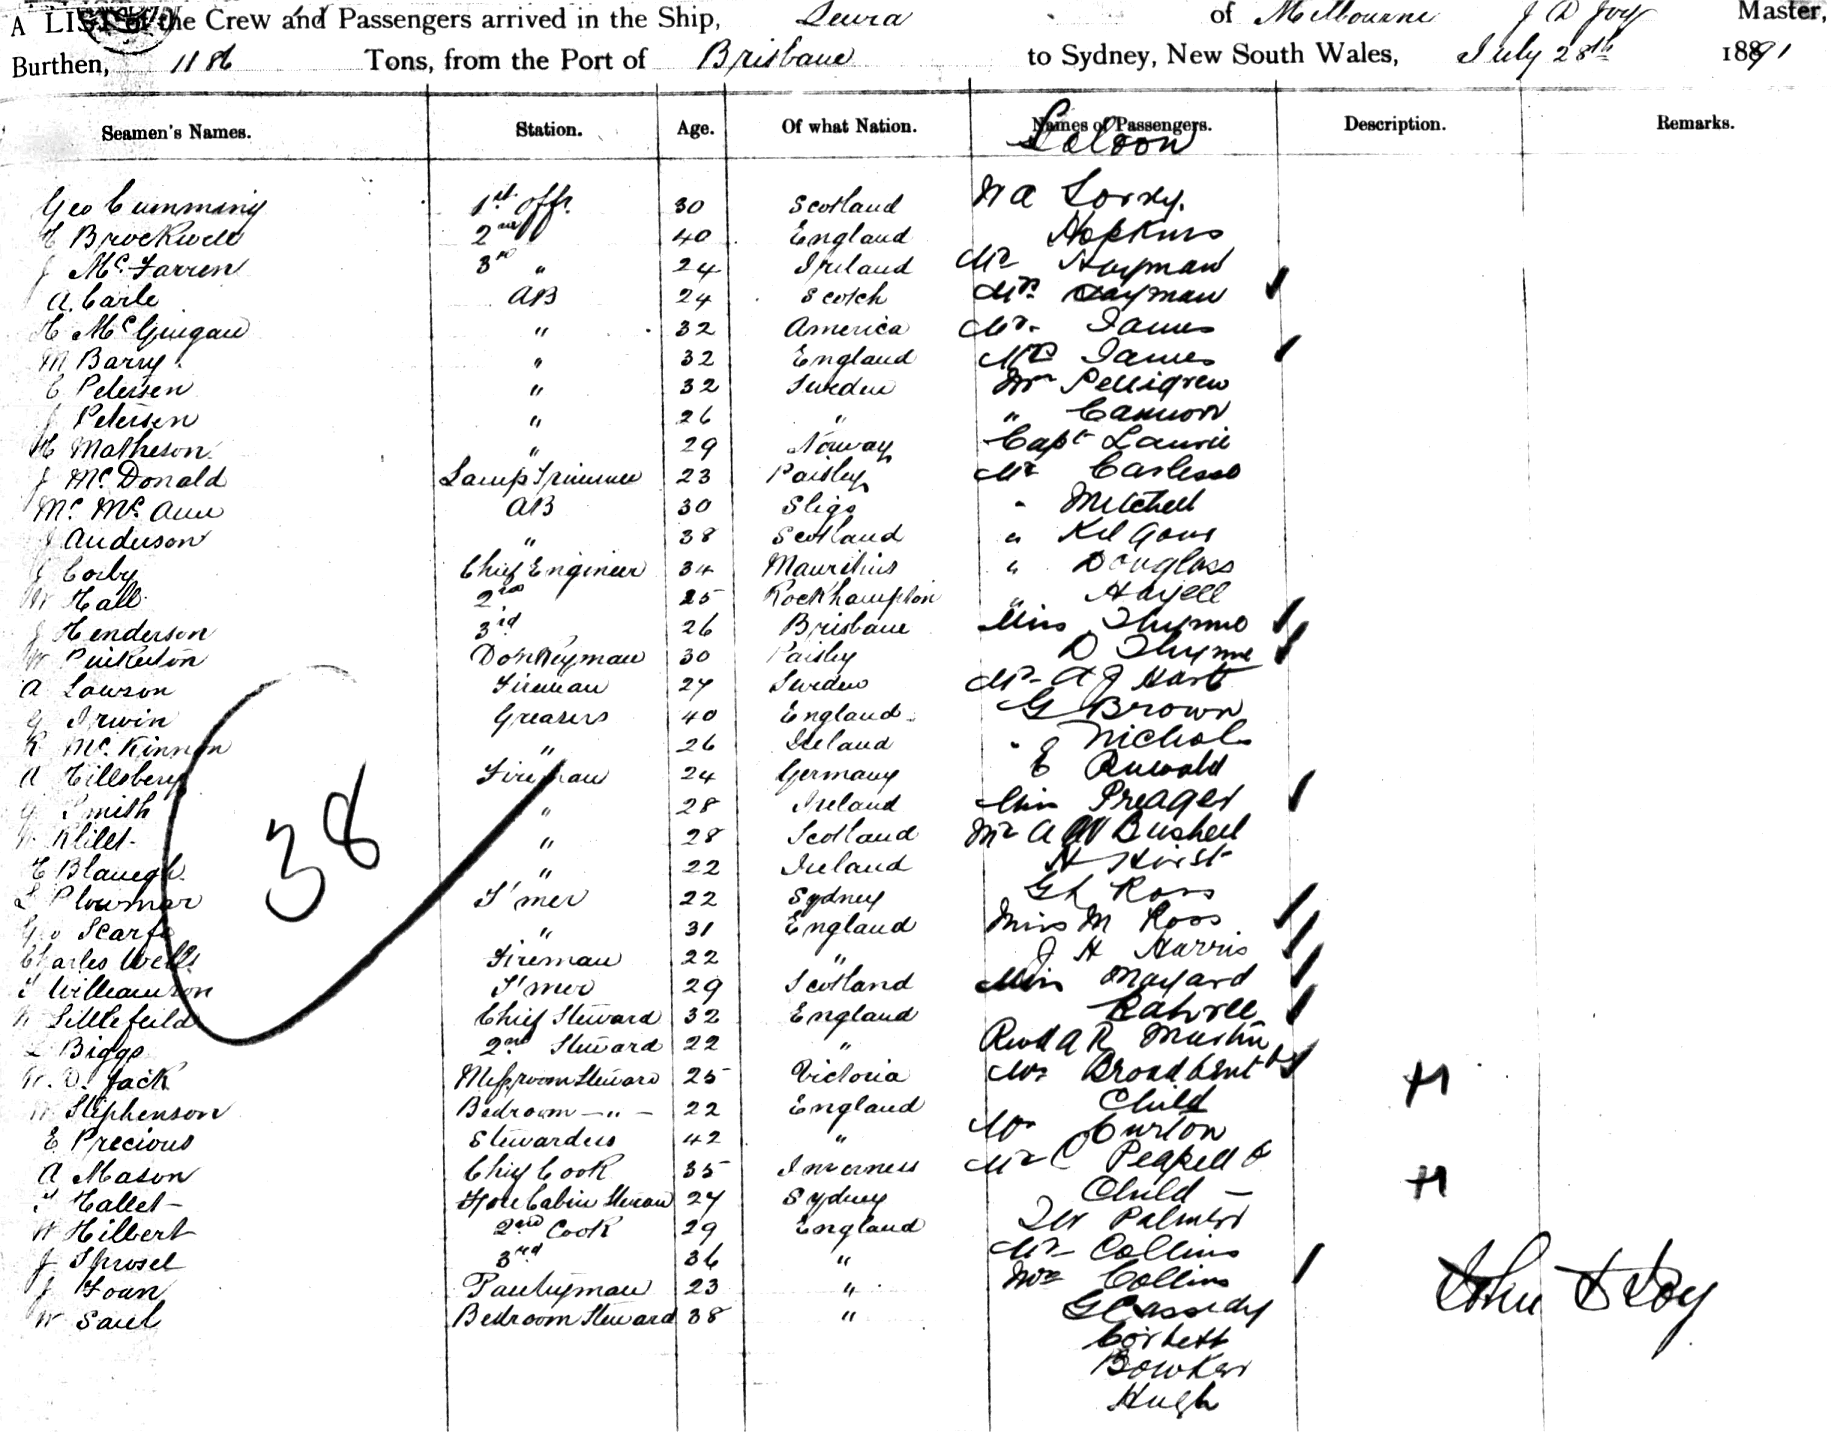 A LIST of the Crew and Passengers arrived in the Ship, Leura of Melbourne J D Joy Master,
Burthen, 1186 Tons, from the Port of Brisbane to Sydney, New South Wales, July 28th 1891
Seamen's Names. Station. Age. Of what Nation. Names of Passengers. Description. Remarks.
Saloon
Geo Cumming 1st offr. 30 Scotland
H Brockwell 2nd 40 England Hopkins
J McFarren 3rd " 24 Ireland Mr Hayman
A. Carle AB 24 Scotch Mrs Hayman
H McGuigan " 32 America Mr. James
M Barry " 32 England Mrs James
C Petersen " 32 Sweden Mr Pelligrew
J Petersen " 26 " " Cannon
H Matheson " 29 Norway Capt Laurie
J McDonald Lamp Trimmer 23 Paisley Mr Carlesso
Mc McAnn AB 30 Sligo " Mitchell
J Anderson " 38 Scotland " Kilgour
J Corby Chief Engineer 34 Mauritius " Douglass
W Hall 2nd 25 Rockhampton "
J Henderson 3rd 26 Brisbane Miss Thynne
W Pinkerton Donkeyman 30 Paisley D Thynne
A Lawson Fireman 27 Sweden Mr A J Hart
G Irwin Greasers 40 England G Brown
R McKinnon " 26 Ireland " J Nichols
A Hillsberg Fireman 24 Germany E
G Smith " 28 Ireland Miss Preager
W " 28 Scotland Mr A W Bushell
" 22 Ireland H Hirst
L Plowman T'mer 22 Sydney G L Ross
Geo Scarfe " 31 England Miss M Ross
Charles Wells Fireman 22 " J H Harris
T Williamson T'mer 29 Scotland Miss Mayard
W Littlefield Chief Steward 32 England
L Biggs 2nd Steward 22 " Revd A R Martin
W. D. Jack Messroom Steward 25 Victoria Mrs Broadbent &
W Stephenson Bedroom - " - 22 England Child H
E Precious Stewardess 42 " Mr Curton
A Mason Chief Cook 35 Inverness Mr C Peapell &
T Hallet Fore Cabin Steward 27 Sydney Child — H
W Hilbert 2nd Cook 29 England Palmer
J 3rd 36 " Mr Collins
J Pantryman 23 " Mrs Collins
W Saul Bedroom Steward 38 " G Cassidy
Corbett
Bowker
Hugh
38
John D Joy